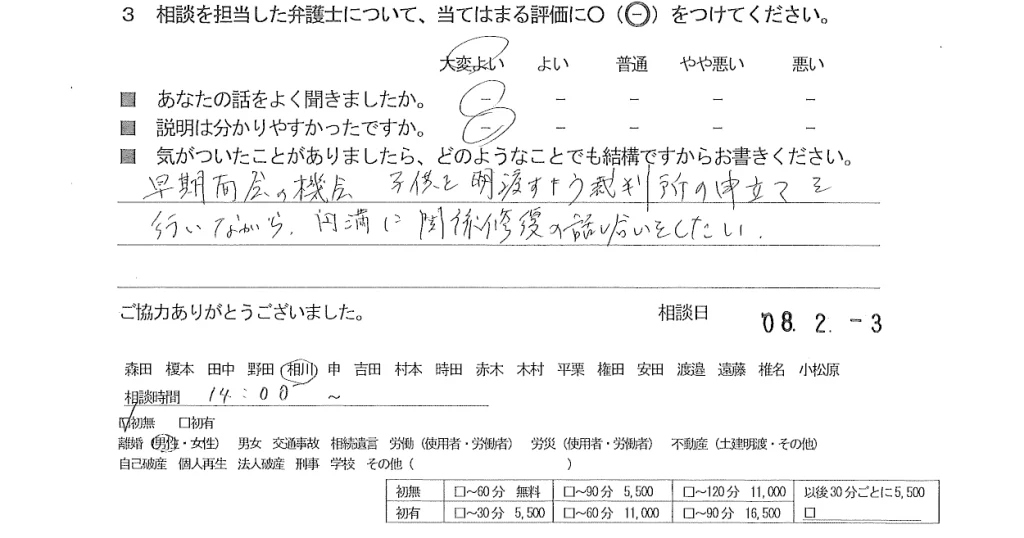 3 相談を担当した弁護士について、当てはまる評価に〇（㊀）をつけてください。
大変よい よい 普通 やや悪い 悪い
■ あなたの話をよく聞きましたか。 － － － － －
■ 説明は分かりやすかったですか。 － － － － －
■ 気がついたことがありましたら、どのようなことでも結構ですからお書きください。
早期面会の機会 子供を明渡すよう裁判所の申立てを
行いながら、円満に関係修復の話し合いをしたい.
ご協力ありがとうございました。 相談日 '08. 2. -3
森田 榎本 田中 野田 相川 申 吉田 村本 時田 赤木 木村 平栗 権田 安田 渡邉 遠藤 椎名 小松原
相談時間 14:00 ～
☐初無 ☐初有
離婚（男性・女性） 男女 交通事故 相続遺言 労働（使用者・労働者） 労災（使用者・労働者） 不動産（土建明渡・その他）
自己破産 個人再生 法人破産 刑事 学校 その他（ ）
初無 ☐～60分 無料 ☐～90分 5,500 ☐～120分 11,000 以後30分ごとに5,500
初有 ☐～30分 5,500 ☐～60分 11,000 ☐～90分 16,500 ☐